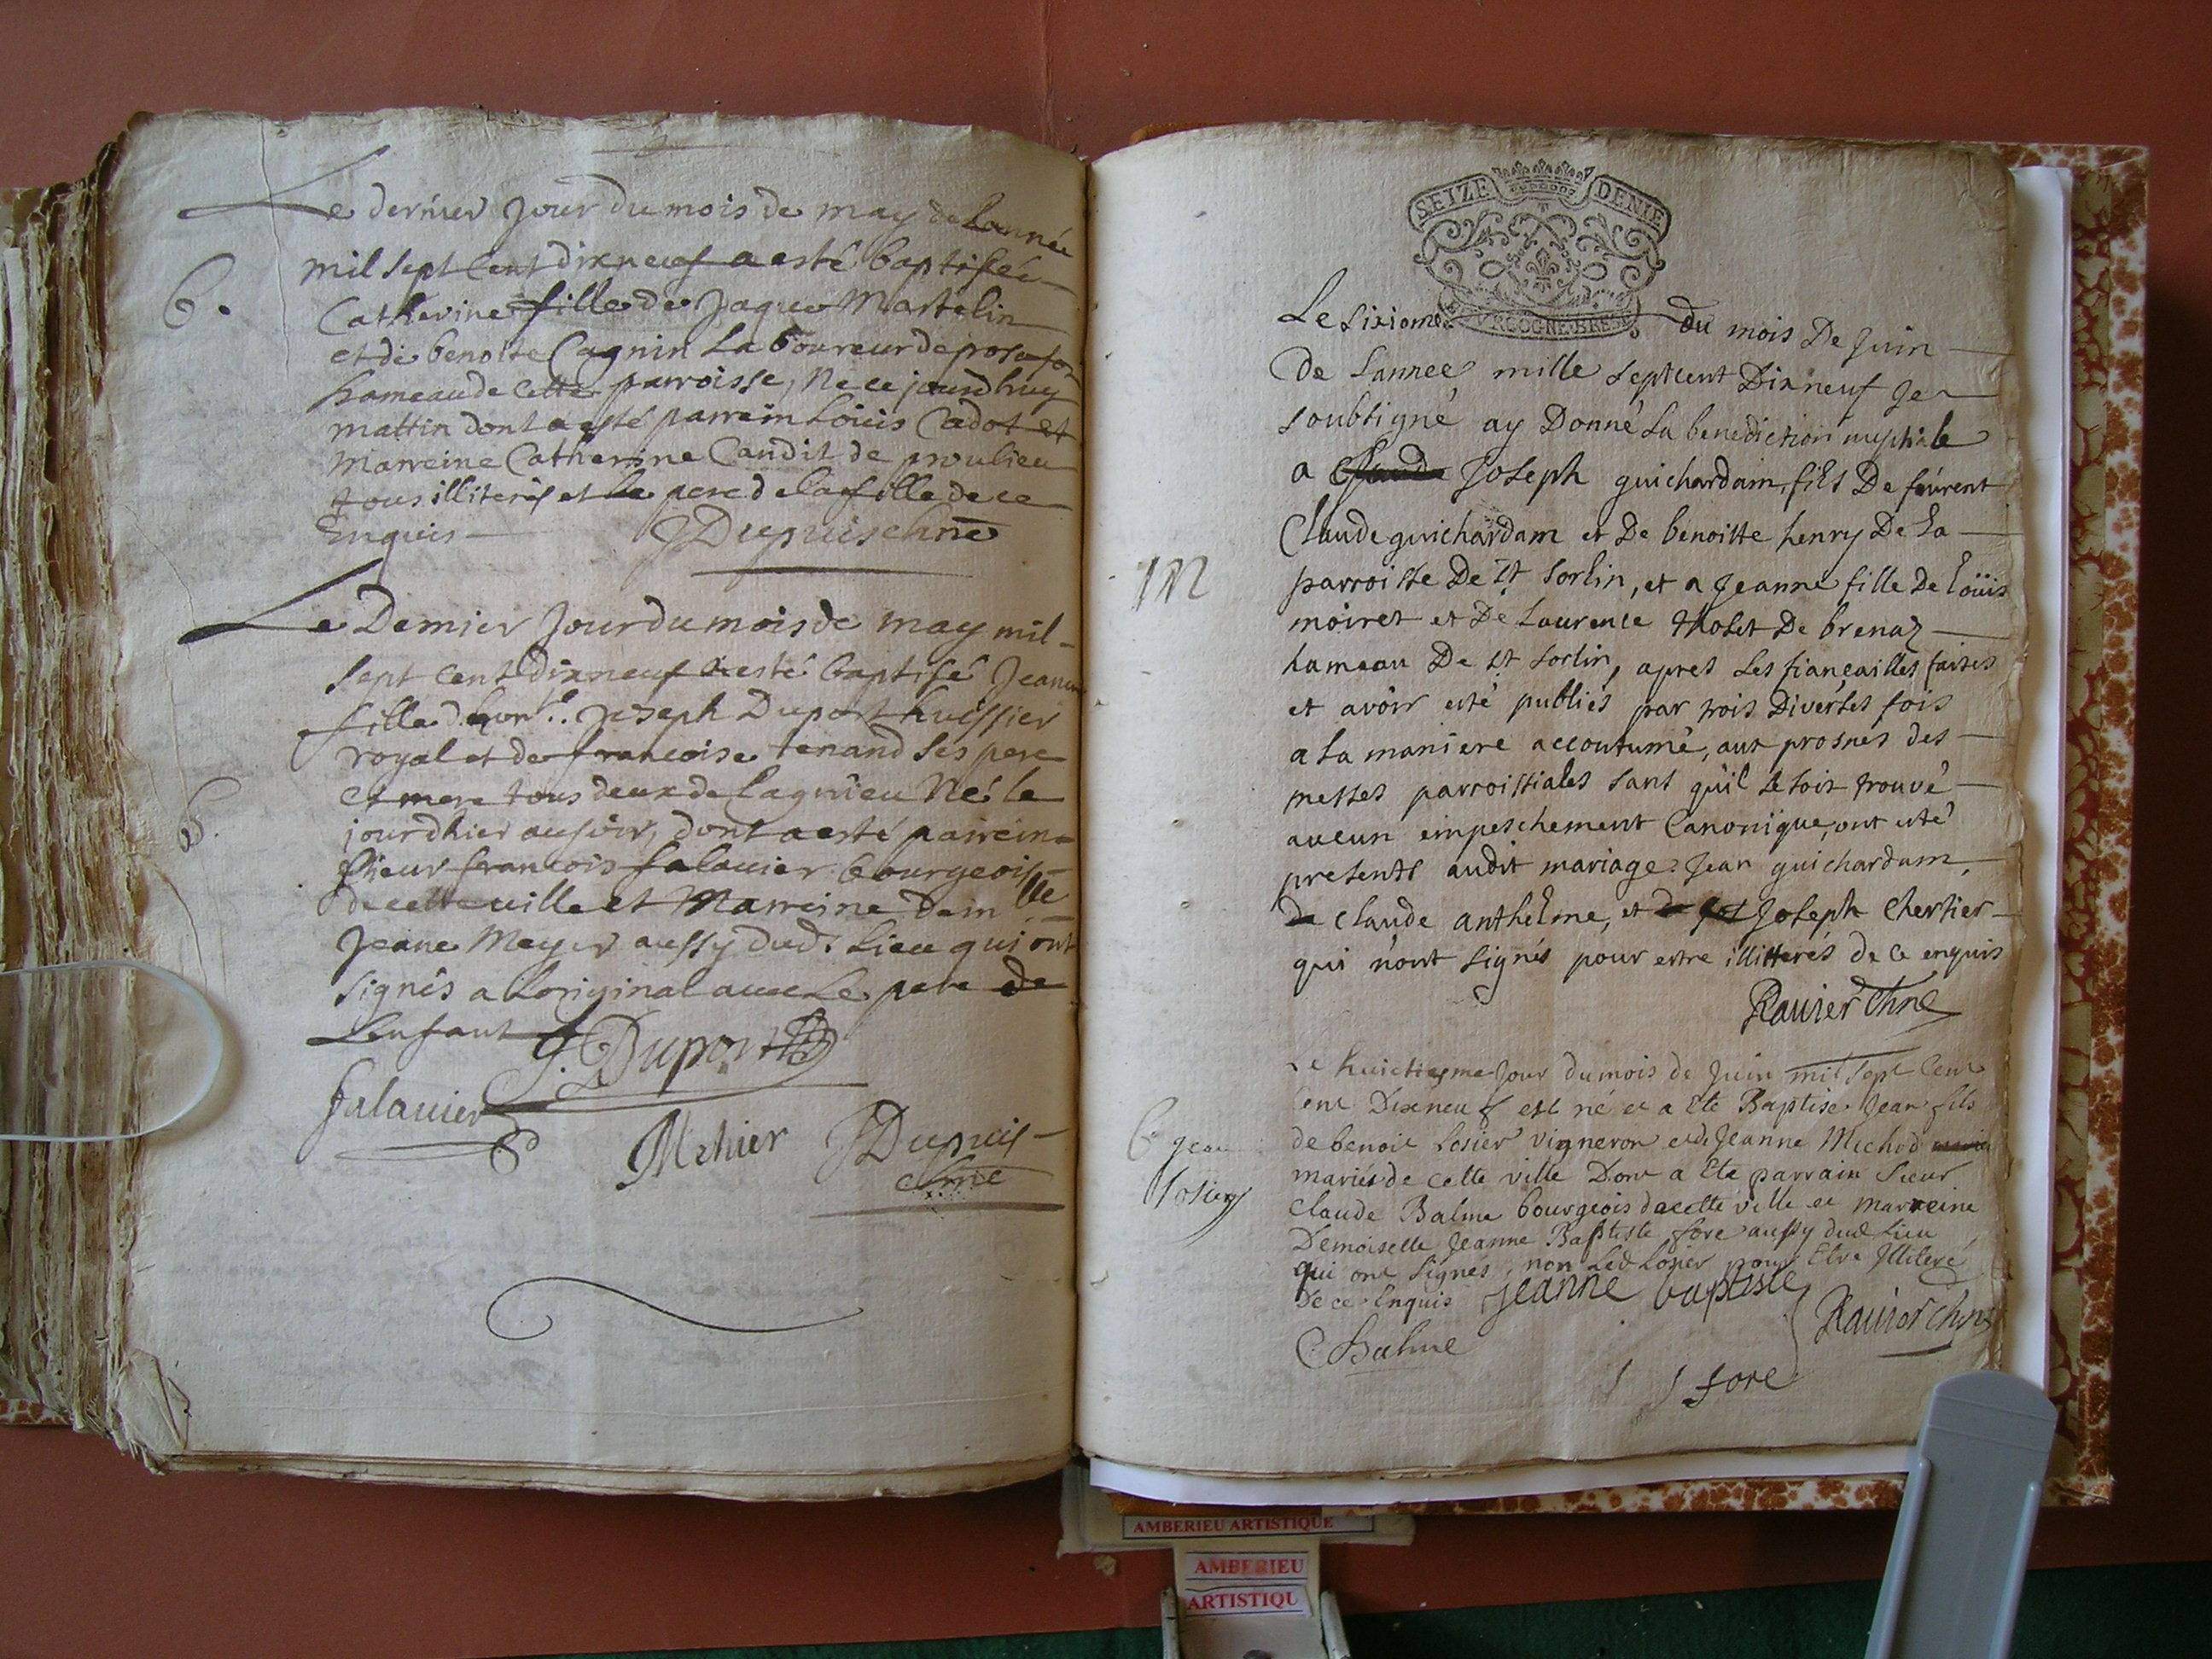 Le dernier jour du mois de may de Lannée
mil sept cent dixneuf a esté baptisée
B.
Catherine fille de Jaque Martelin
et de benoite Cagnin Laboureur de
hameau de cette parroisse, Ne ce jourdhuy
mattin dont a esté parrein Loüis Cadot et
Marreine Catherine Candit de proulieu
tous illiterés et le pere de la fille de ce
Enquis JDupuis chne
Le Dernier Jour du mois de may mil
sept cent dixneuf a esté baptisé Jeanne
fille d. Joseph Duport huissier
royal et de francoise tenand ses pere
et mere tous deux de Lagnieu Né le
B.
jourdhier au soir, dont a esté parrein
sieur francois falauier bourgeois
de cette uille et Marreine Damlle
Jeane Meyer aussy dud. Lieu qui ont
signés a Loriginal auec Le pere de
Lenfant J. Duport
falauier
Mehier JDupuis
chne
SEIZE DENIE
RGOGNE BRES
Le sixiome du mois De Juin
De Lannee mille septcent Dixneuf Je
soubsigné ay Donné La benediction nuptiale
a Joseph guichardam, fils De
Claude guichardam et De benoitte henry De La
M
parroisse De St Sorlin, et a Jeanne fille De Loüis
moiret et De Laurence tholet De brenaz
hameau De St Sorlin, apres Les fiançailles faites
et avoir esté publiés par trois Diverses fois
a La maniere accoutumé, aux prosnes des
messes parroissiales sans qu'il se soit trouvé
aucun empeschement Canonique, ont esté
presents audit mariage Jean guichardam,
de claude anthelme, et Joseph Chertier
qui n'ont signés pour estre illitterés de ce enquis
Rauier chne
Le huictiesme Jour du mois de Juin mil sept Cent
Cent Dixneuf est né et a Eté Baptisé Jean fils
B Jean
de benoit Losier vigneron et de Jeanne Michod
Losier
mariés de cette ville Dont a Eté parrain Sieur
Claude Balme bourgeois de cette ville et marreine
Demoiselle Jeanne Baptiste fore aussy dud Lieu
qui ont Signés, non Led Losier pour Etre Illiteré
De ce Enquis Jeanne baptiste
Rauier chne
CBalme
fore
AMBERIEU ARTISTIQUE
AMBERIEU
ARTISTIQU